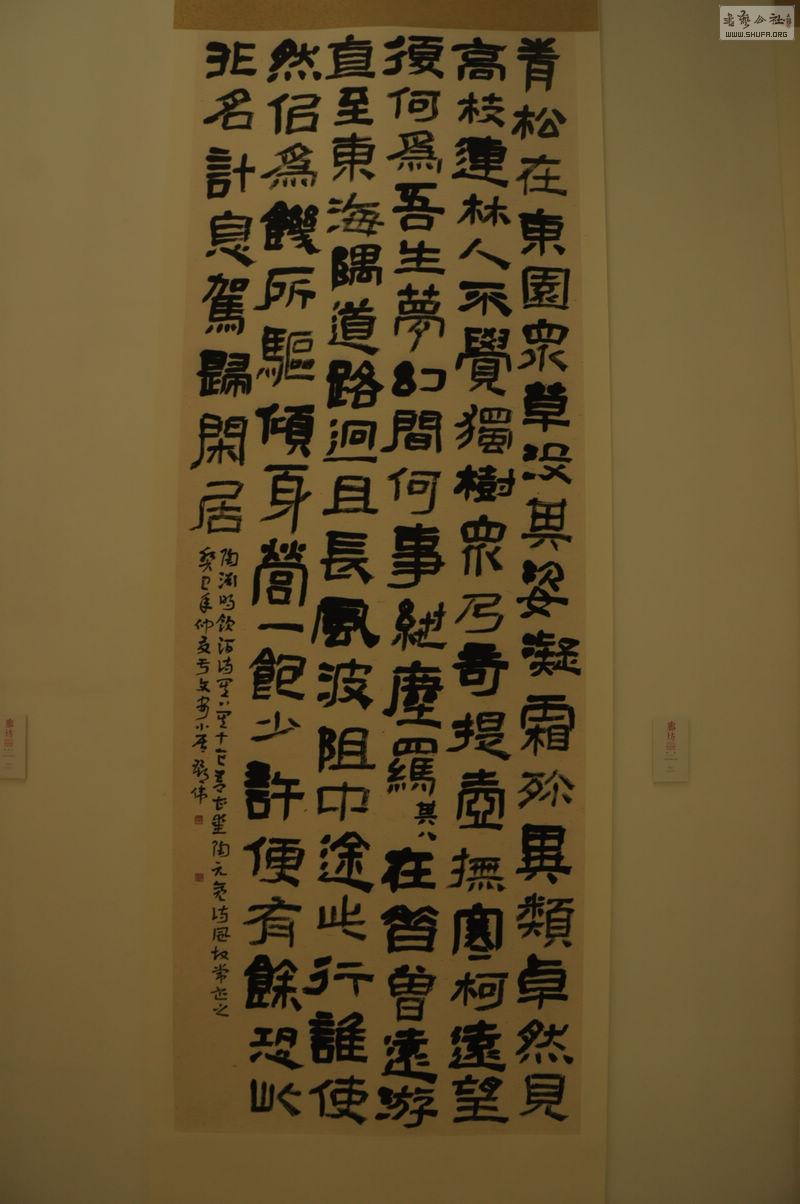 青松在東園眾草没其姿凝霜殄異類卓然見
高枝連林人不覺獨樹眾乃奇提壺撫寒柯遠望
復何爲吾生夢幻間何事紲塵羈其八在昔曾遠游
直至東海隅道路迥且長風波阻中途此行誰使
然似爲饑所驅傾身營一飽少許便有餘恐此
非名計息駕歸閑居
陶淵明飲酒詩 陶元亮詩風故常書之
癸巳年仲夏于文安小居
WWW.SHUFA.ORG